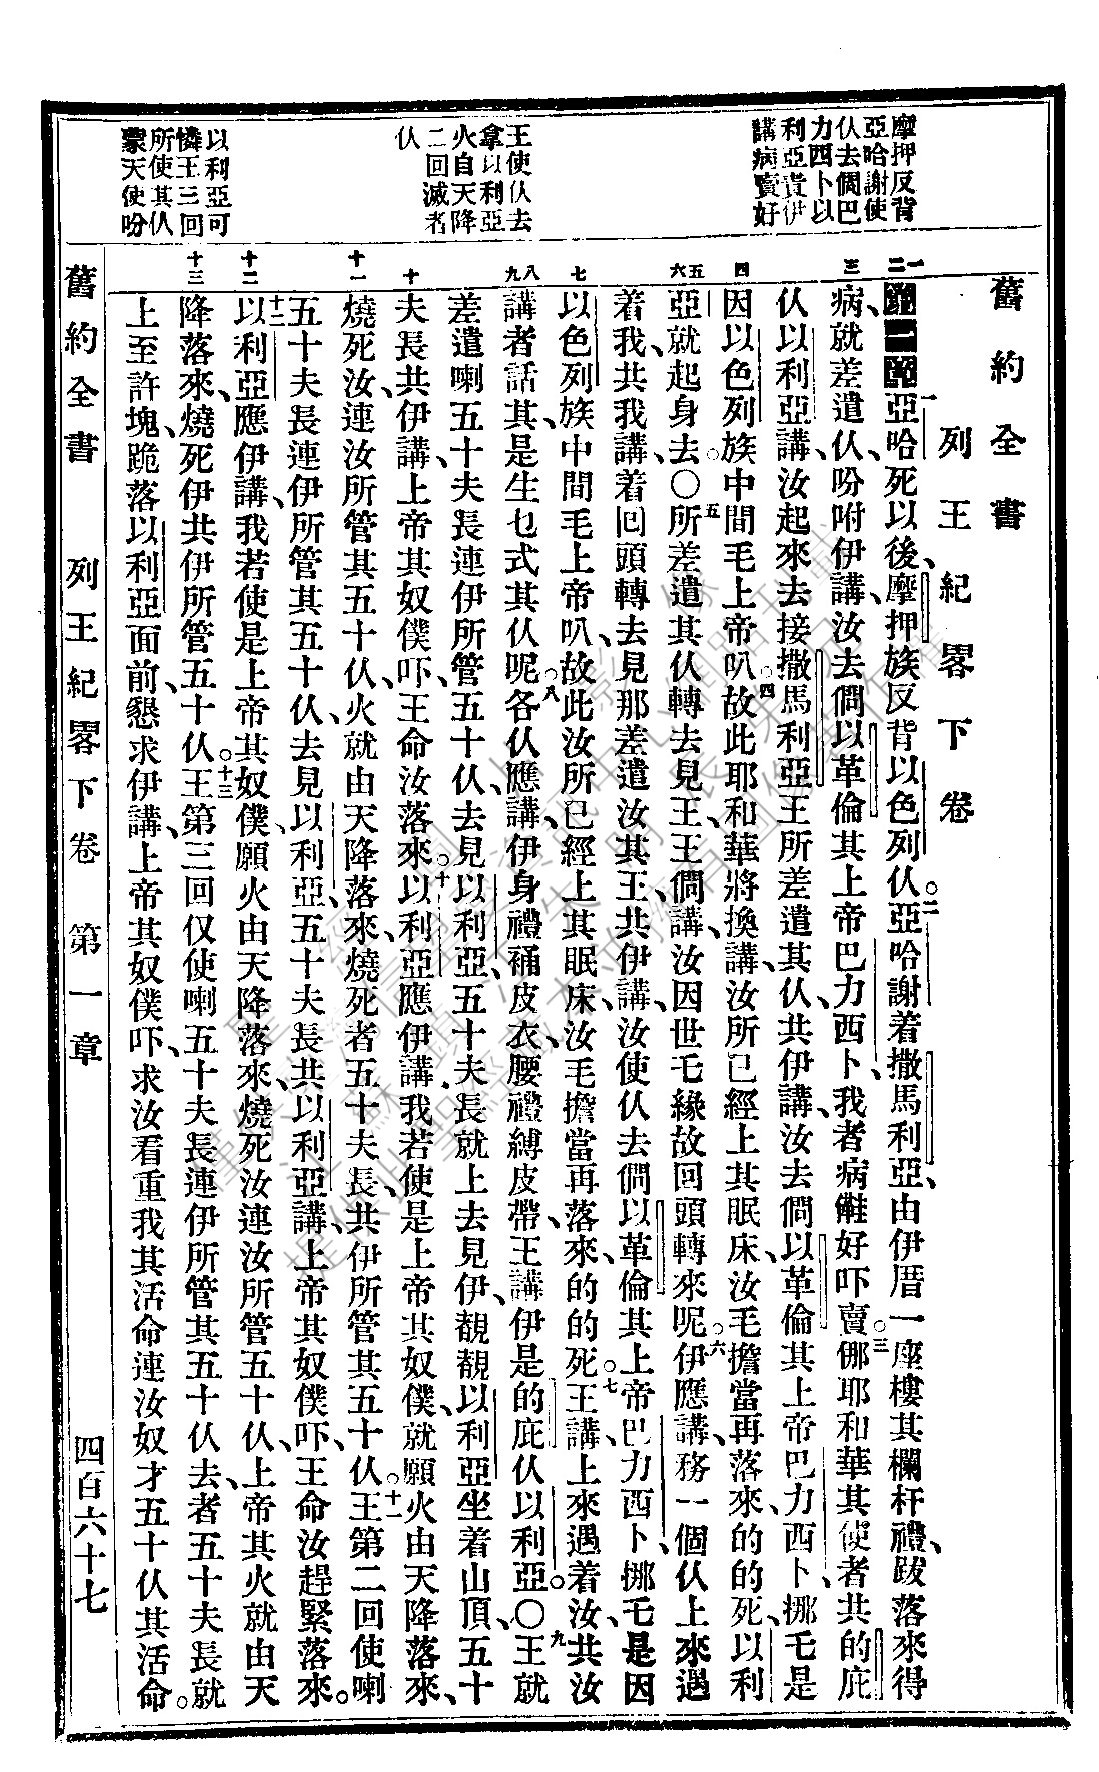 舊約全書
列王紀畧下卷
摩押反背
亞哈謝使
仈去問巴
力西卜以
利亞責伊
講病賣好
王使仈去
拿以利亞
火自天降
二回滅者
仈
以利亞可
憐王三回
所使其仈
蒙天使吩
一二
三
四
五六
七
八九
十
十一
十二
十三
第一章亞哈死以後、摩押族反背以色列仈。二亞哈謝着撒馬利亞、由伊厝一座樓其欄杆禮、跋落來得
病、就差遣仈、吩咐伊講、汝去問以革倫其上帝巴力西卜、我者病𠁞好吓賣。三㑚耶和華其使者、共的庇
仈以利亞講、汝起來去接撒馬利亞王所差遣其仈、共伊講、汝去問以革倫其上帝巴力西卜、挪乇是
因以色列族中間毛上帝叭。四故此耶和華將換講、汝所已經上其眠床、汝毛擔當再落來、的的死、以利
亞就起身去。〇五所差遣其仈轉去見王、王問講、汝因世乇緣故回頭轉來呢。六伊應講、務一個仈上來遇
着我、共我講、着回頭轉去見那差遣汝其王、共伊講、汝使仈去問以革倫其上帝巴力西卜、挪乇是因
以色列族中間毛上帝叭、故此汝所已經上其眠床、汝毛擔當再落來、的的死。七王講、上來遇着汝、共汝
講者話其、是生乜式其仈呢。八各仈應講、伊身禮補皮衣、腰禮縛皮帶、王講、伊是的庇仈以利亞。〇九王就
差遣喇五十夫長、連伊所管五十仈、去見以利亞、五十夫長就上去見伊、覩覩以利亞坐着山頂、五十
夫長共伊講、上帝其奴僕吓、王命汝落來。十以利亞應伊講、我若使是上帝其奴僕、就願火由天降落來、
燒死汝、連汝所管其五十仈、火就由天降落來、燒死者五十夫長、共伊所管其五十仈。十一王第二回使喇
五十夫長連伊所管其五十仈、去見以利亞、五十夫長共以利亞講、上帝其奴僕吓、王命汝趕緊落來。
十二以利亞應伊講、我若使是上帝其奴僕、願火由天降落來、燒死汝連汝所管五十仈、上帝其火就由天
降落來、燒死伊共伊所管五十仈。十三王第三回仅使喇五十夫長連伊所管其五十仈去、者五十夫長就
上至許塊、跪落以利亞面前、懇求伊講、上帝其奴僕吓、求汝看重我其活命、連汝奴才五十仈其活命。
舊約全書 列王紀畧下卷 第一章 四百六十七